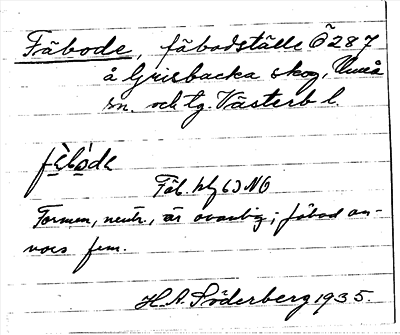 Fäbode, fäbodställe Ö 287
å Grisbacka skog, Umeå
sn. och tg. Västerb l.
fèbòde
Fäb. blz 63 NO
Formen, neutr., är ovanlig; fäbod an-
nars fem.
H. A. Söderberg 1935.